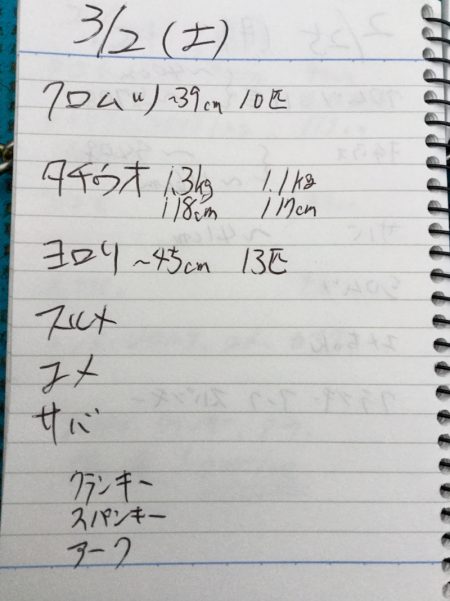 3/2 (土)
クロムツ ~39cm 10匹
タチウオ 1.3kg 1.1kg
118cm 117cm
ヨロリ ~45cm 13匹
スルメ
ユメ
サバ
クランキー
スパンキー
アーク